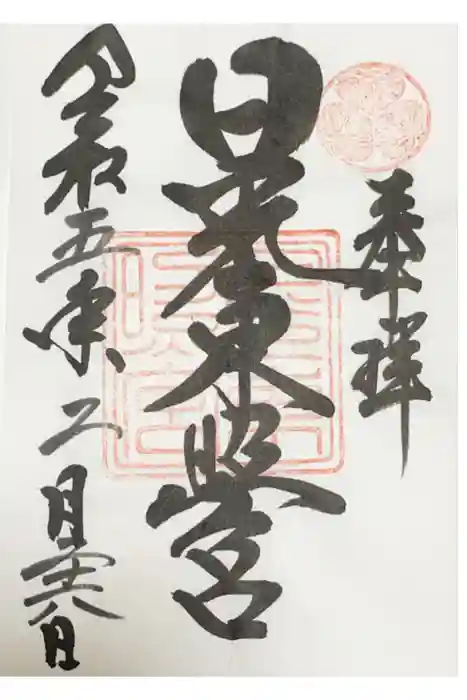 奉拝
日光東照宮
令和五年二月 日